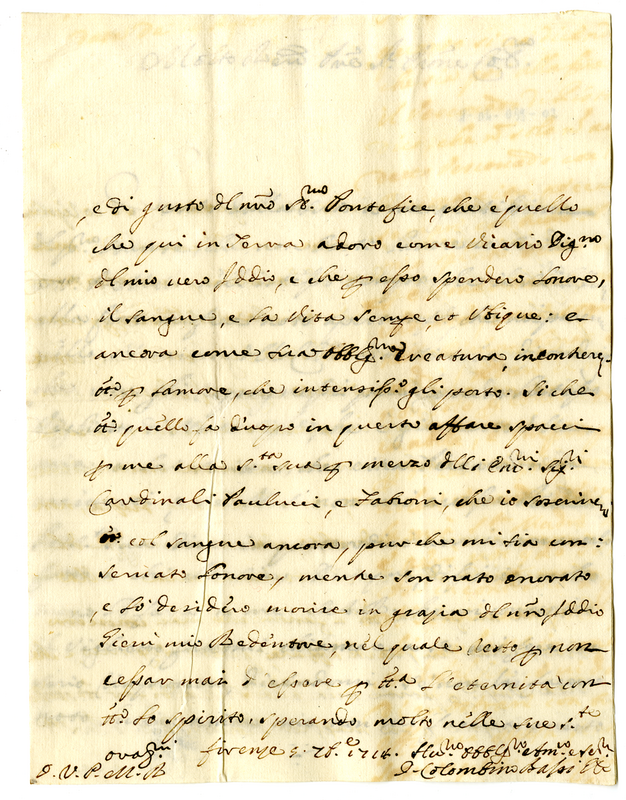 , e di gusto del nro Sto.mo Pontefice, che è quello
che qui in Terra adoro come Vicario Dig.no
del mio vero Iddio, e che p esso spenderò l'onore,
il sangue, e la Vita sempe, et Ubique: e
ancora come sua obblig.ma creatura, incontrerò
tto p l'amore, che intensiss.o gli porto. Si che
tto quello fa d'uopo in questo affare spacci
p me alla S.ta sua p mezzo delli Em.mi Sig.ri
Cardinali Paulucci, e Fabroni, che io soscriverò
col sangue ancora, purche mi sia con:
servato l'onore, mentre son nato onorato
, e sò desidero morire in grazia del nro Iddio
Giesù mio Redentore, nel quale resto p non
cessar mai d'essere p tta L'eternità con
tto lo spirito, sperando molto nelle sue S.te
oraz.ni Firenze 5. 7b.e 1714. Hu.mo obblig.mo et
D. V. P. M. R D. Colombino Bassi